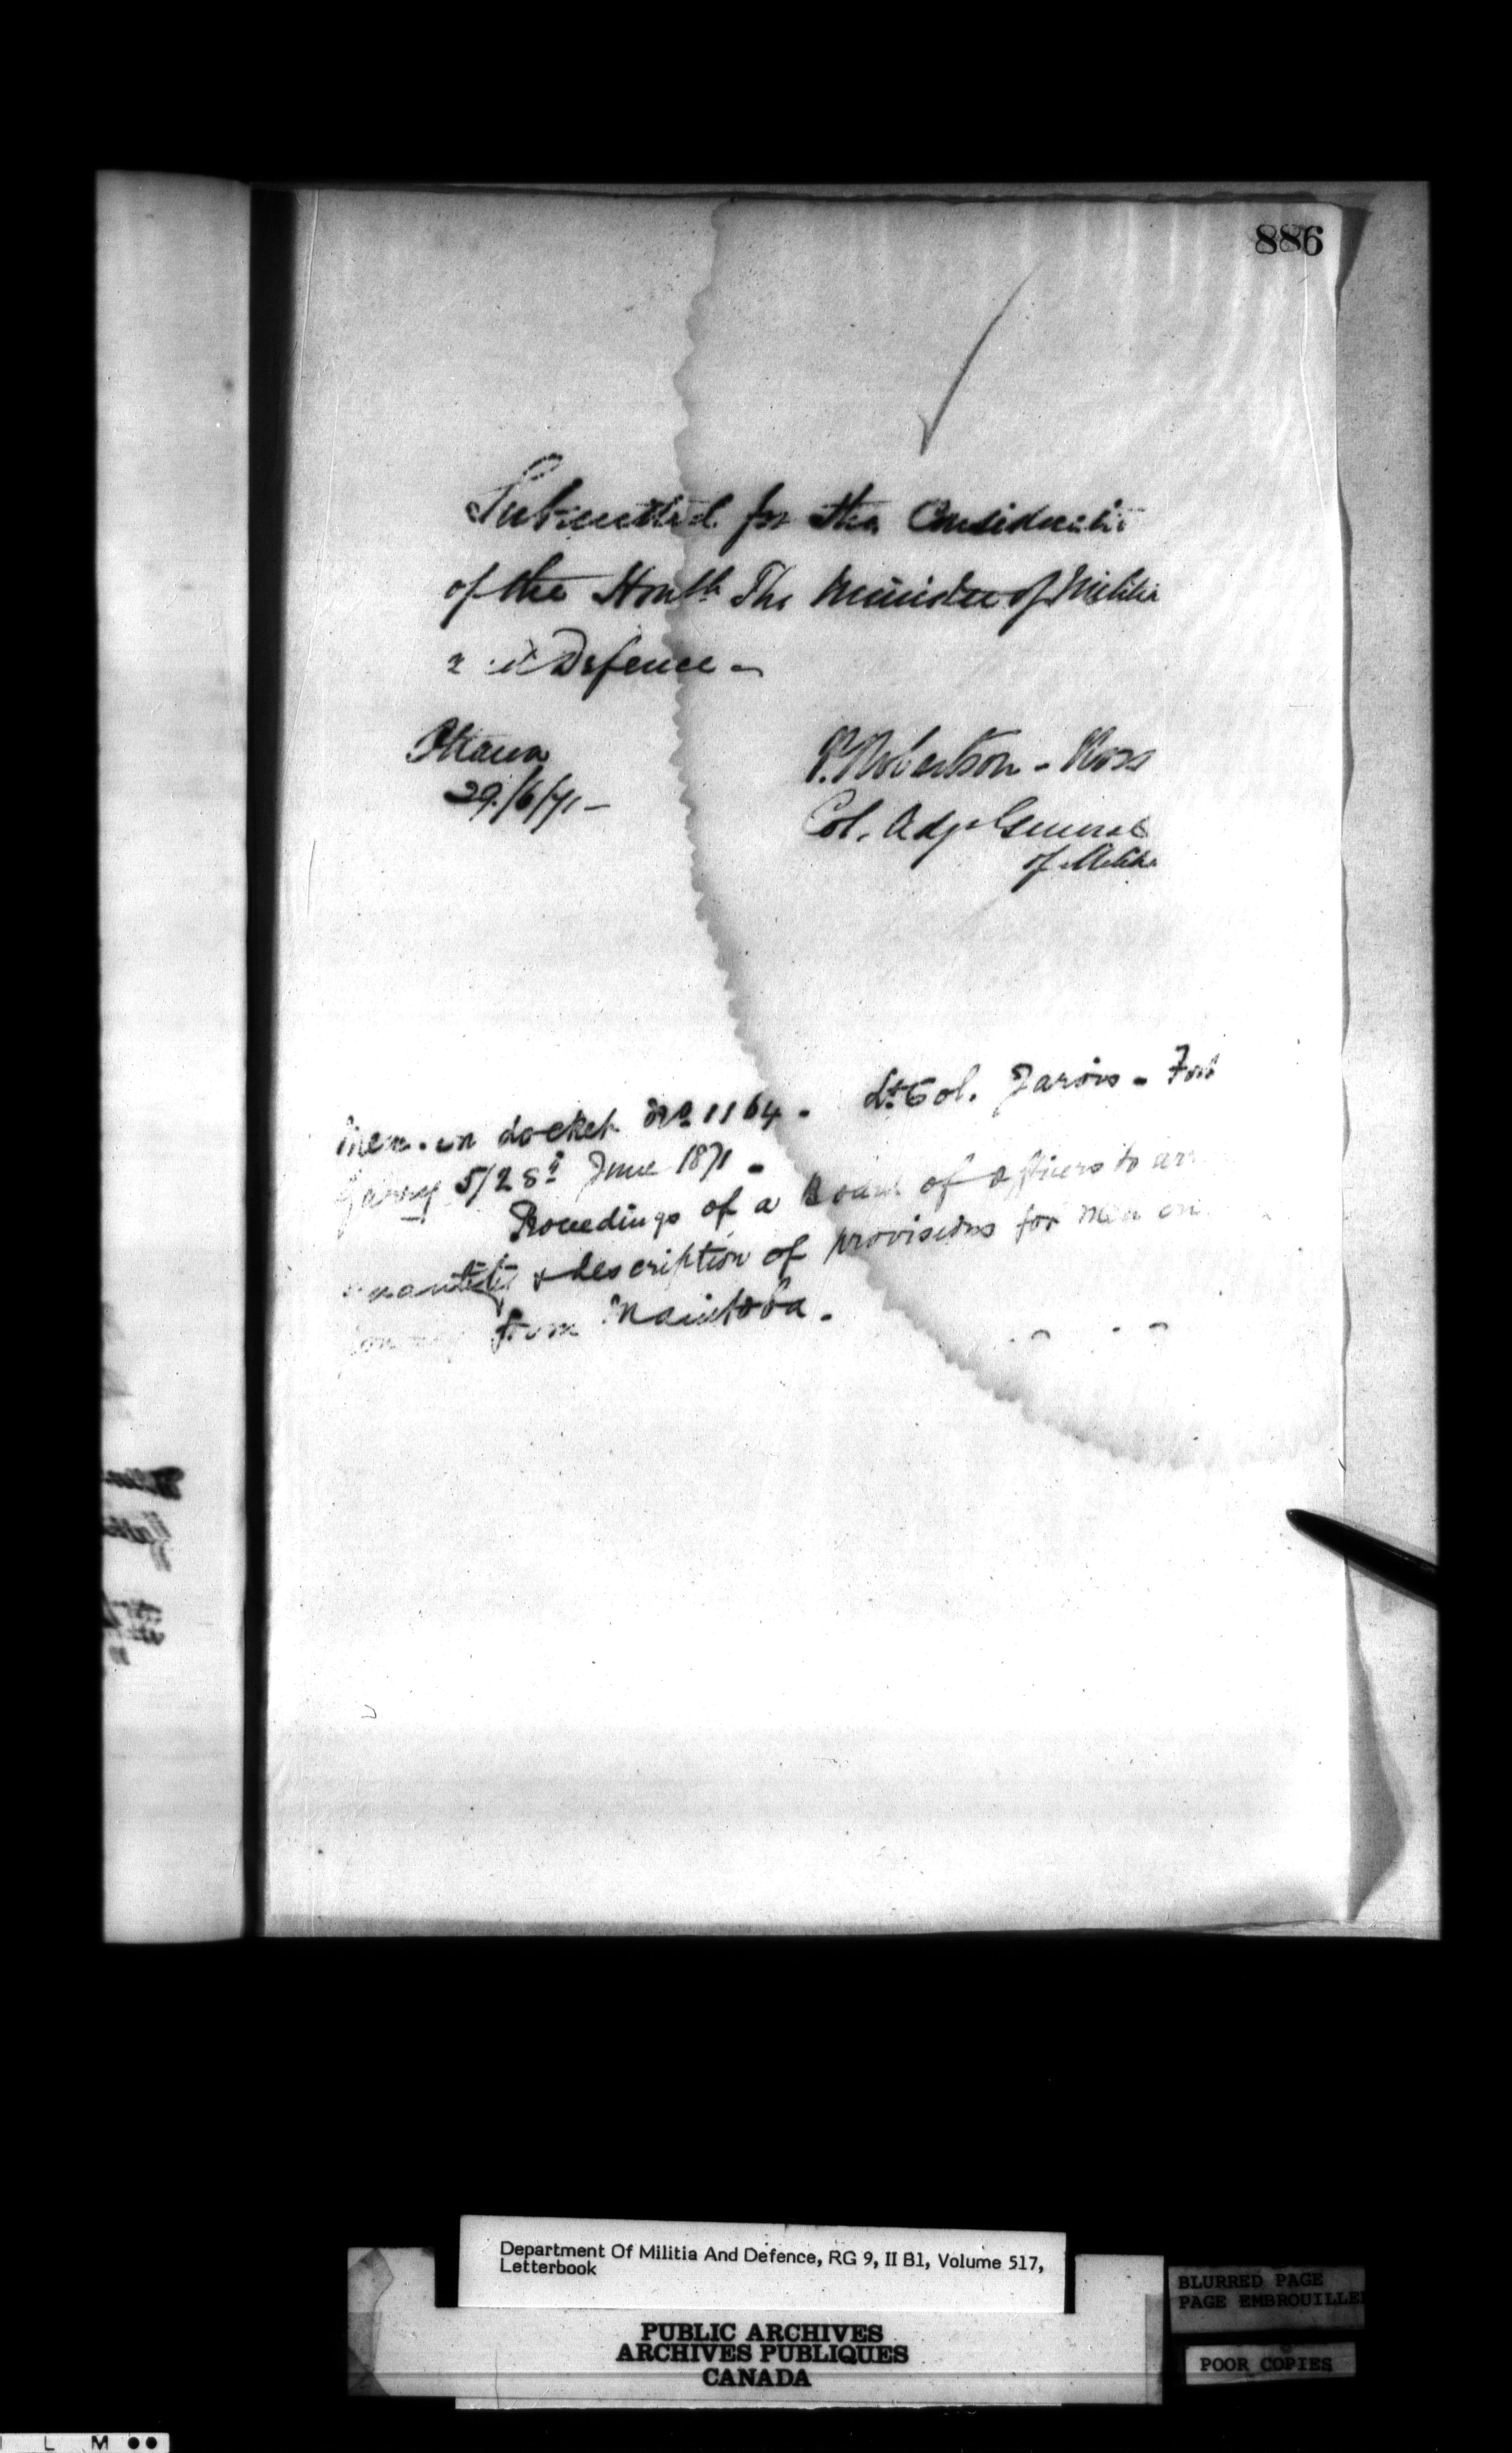 886
Submitted for the Consideratio
of the Honble The Minister of Militia
and Defence -
Ottawa
29/6/71 -
P. Robertson - Ross
Col. Adjt General
of Militia
Mem. on docket No 1164. Lt Col. Jarvis - Fort
Garry 5/28th June 1871 -
Proceedings of a Board of Officers to
quantity & description of provisions for men
from Manitoba.
Department Of Militia And Defence, RG 9, II B1, Volume 517,
Letterbook
PUBLIC ARCHIVES
ARCHIVES PUBLIQUES
CANADA
BLURRED PAGE
PAGE EMBROUILLE
POOR COPIES
L M